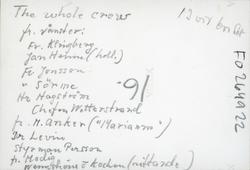 The whole crew
fr. vänster:
Fr. Klingberg
Jan Hahne (holl.)
Fr Jonsson
" Sörme
Hr Hagström
Chefen Wetterstrand
fr. M. Anker ("Mariann")
Dr Levin
Styrman Persson
fr. Modig
& Kocken (sittande)
-91
13 ort
FO264922